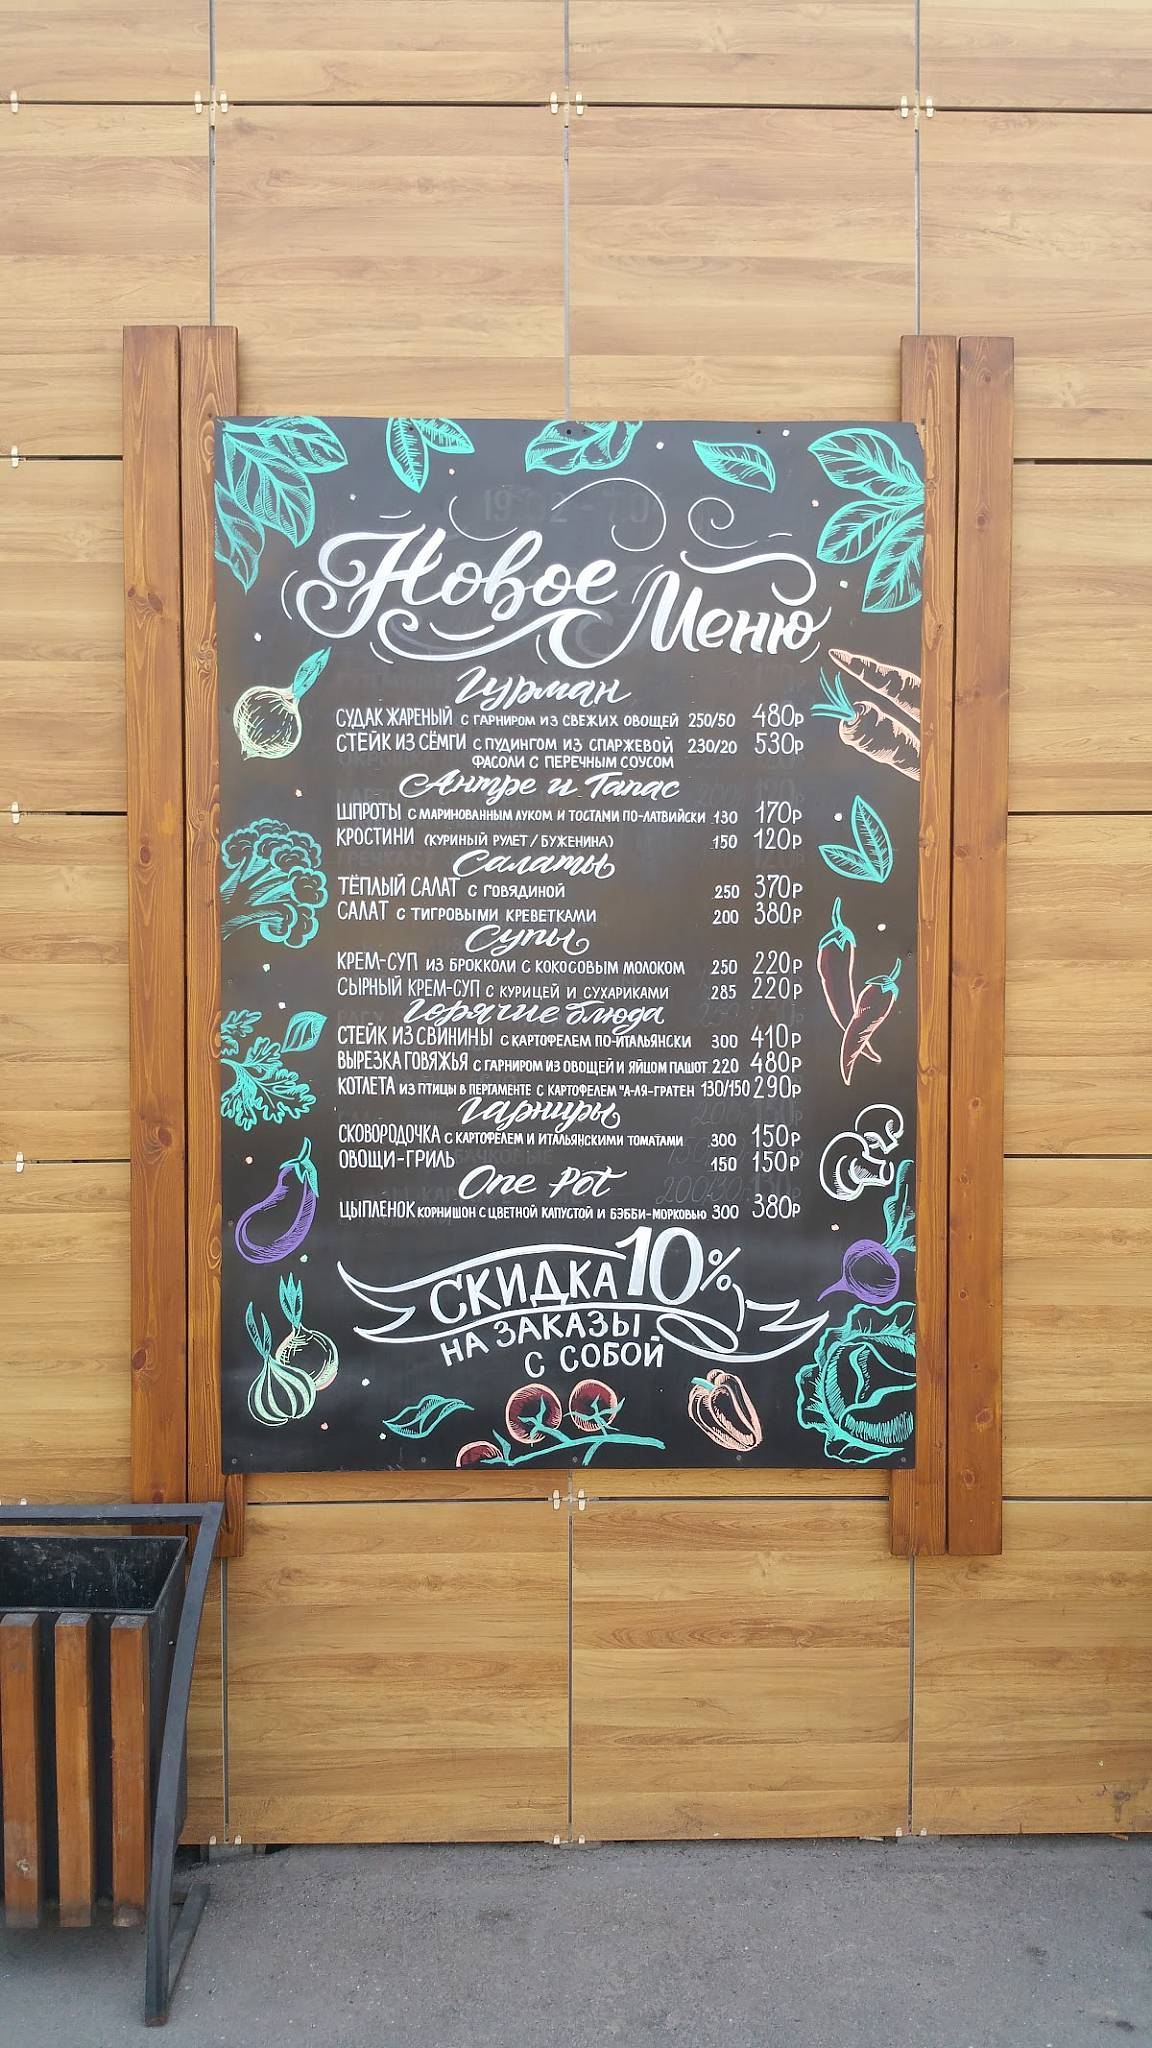 Новое
Меню
Гурман
СУДАК ЖАРЕНЫЙ С ГАРНИРОМ ИЗ СВЕЖИХ ОВОЩЕЙ 250/50 480Р
СТЕЙК ИЗ СЁМГИ С ПУДИНГОМ ИЗ СПАРЖЕВОЙ 230/20 530Р
ФАСОЛИ С ПЕРЕЧНЫМ СОУСОМ
Антре и Тапас
ШПРОТЫ С МАРИНОВАННЫМ ЛУКОМ И ТОСТАМИ ПО-ЛАТВИЙСКИ 130 170Р
КРОСТИНИ (КУРИНЫЙ РУЛЕТ / БУЖЕНИНА) 150 120Р
Салаты
ТЁПЛЫЙ САЛАТ С ГОВЯДИНОЙ 250 370Р
САЛАТ С ТИГРОВЫМИ КРЕВЕТКАМИ 200 380Р
Супы
КРЕМ-СУП ИЗ БРОККОЛИ С КОКОСОВЫМ МОЛОКОМ 250 220Р
СЫРНЫЙ КРЕМ-СУП С КУРИЦЕЙ И СУХАРИКАМИ 285 220Р
Горячие блюда
СТЕЙК ИЗ СВИНИНЫ С КАРТОФЕЛЕМ ПО-ИТАЛЬЯНСКИ 300 410Р
ВЫРЕЗКА ГОВЯЖЬЯ С ГАРНИРОМ ИЗ ОВОЩЕЙ И ЯЙЦОМ ПАШОТ 220 480Р
КОТЛЕТА ИЗ ПТИЦЫ В ПЕРГАМЕНТЕ С КАРТОФЕЛЕМ "А-ЛЯ-ГРАТЕН 130/150 290Р
Гарниры
СКОВОРОДОЧКА С КАРТОФЕЛЕМ И ИТАЛЬЯНСКИМИ ТОМАТАМИ 300 150Р
ОВОЩИ-ГРИЛЬ 150 150Р
One Pot
ЦЫПЛЕНОК КОРНИШОН С ЦВЕТНОЙ КАПУСТОЙ И БЭББИ-МОРКОВЬЮ 300 380Р
СКИДКА 10%
НА ЗАКАЗЫ
С СОБОЙ